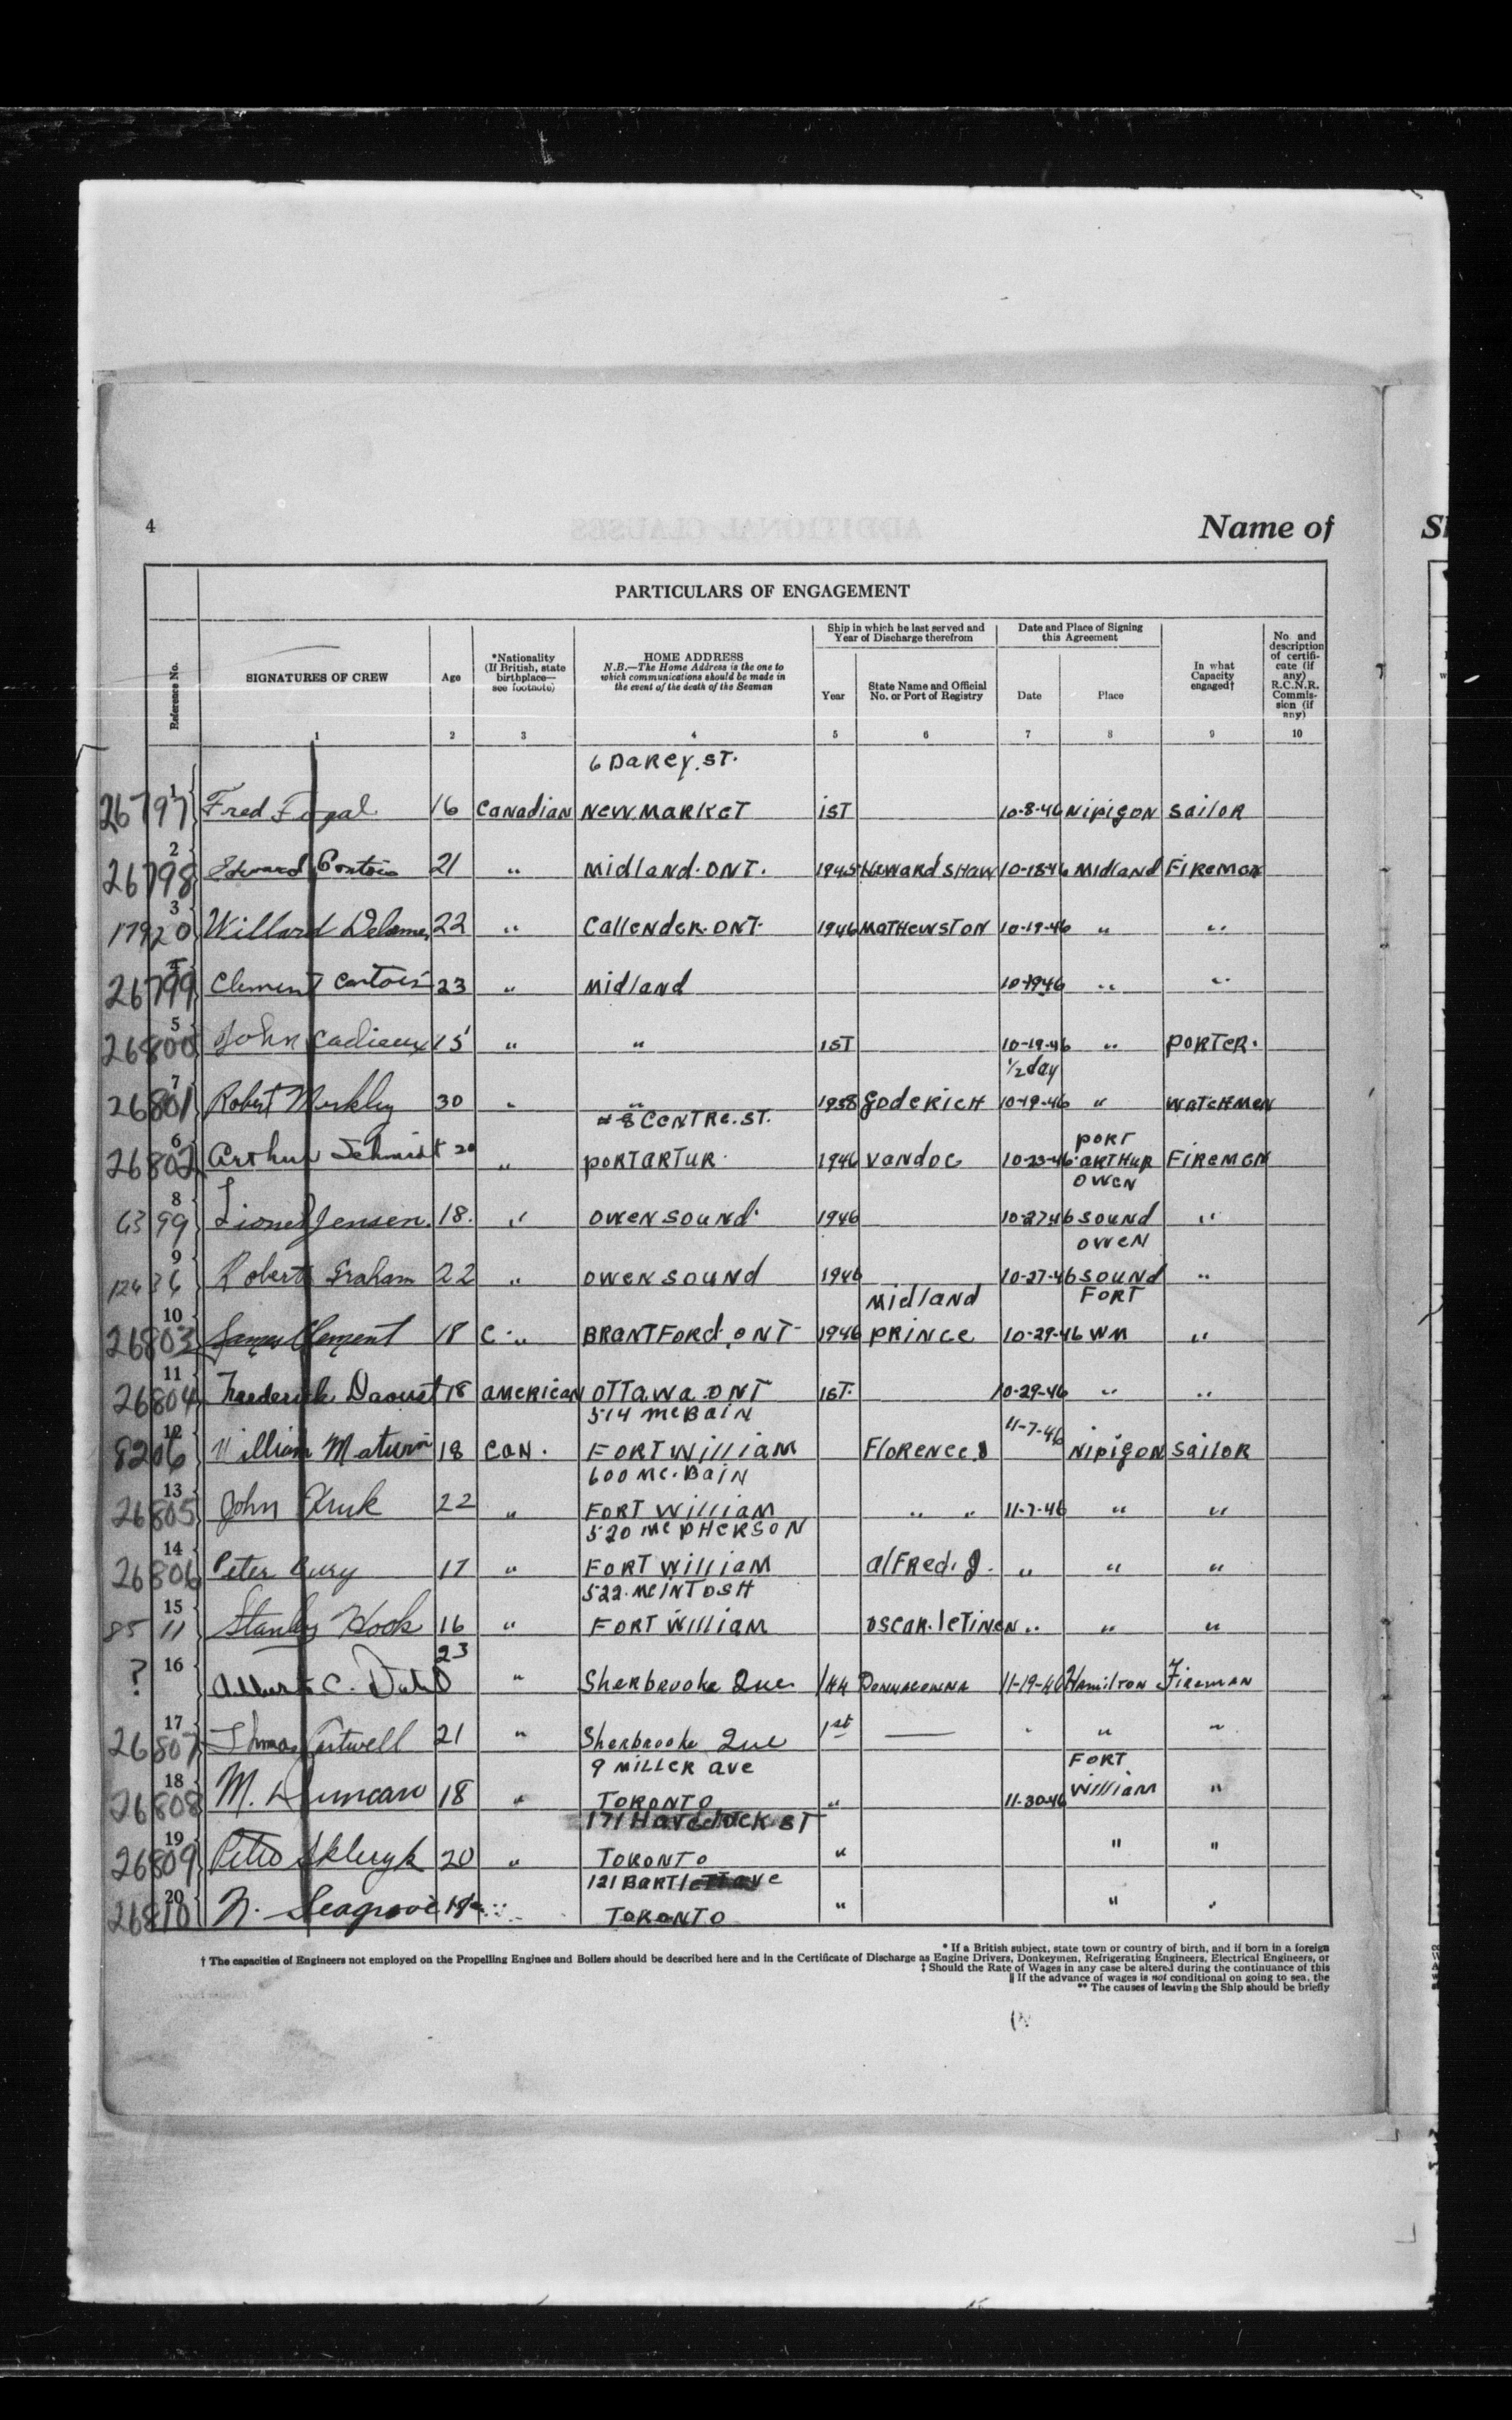 4
Name of
PARTICULARS OF ENGAGEMENT
Reference No.
SIGNATURES OF CREW
Age
*Nationality
(If British, state
birthplace—
see footnote)
HOME ADDRESS
N.B.—The Home Address is the one to
which communications should be made in
the event of the death of the Seaman
Ship in which he last served and
Year of Discharge therefrom
Year
State Name and Official
No. or Port of Registry
Date and Place of Signing
this Agreement
Date
Place
In what
Capacity
engaged†
No. and
description
of certifi-
cate (if
any)
R.C.N.R.
Commis-
sion (if
any)
1 2 3 4 5 6 7 8 9 10
6 Darcy. ST.
26797 1 Fred 16 Canadian Newmarket 1ST 10-8-46 Nipigon Sailor
26798 2 Edward 21 " Midland. ONT. 1945 Howard Shaw 10-18-46 Midland Fireman
17920 3 Willard 22 " Callender. ONT. 1946 Mathewston 10-19-46 " "
26799 Clement 23 " Midland 10-19-46 " "
26800 5 John Cadieux 15 " " 1ST 10-19-46 " Porter.
1/2 day
26801 7 Robert Merkley 30 " " 1938 Goderich 10-19-46 " Watchmen
8 Centre. ST.
26802 6 Arthur Schmidt 20 " Port Artur 1946 Vandoc 10-23-46 Port Arthur Firemen
6399 8 Lionel Jensen. 18. " Owen Sound 1946 10-27-46 Owen Sound "
12436 9 Robert Graham 22 " Owen Sound 1946 10-27-46 Owen Sound "
26803 10 James Clement 18 C. " Brantford. ONT 1946 Midland Prince 10-29-46 Fort WM "
26804 11 Frederick Daoust 18 American Ottawa. ONT 1ST. 10-29-46 " "
514 McBain
8206 12 William 18 Can. Fort William Florence. 11-7-46 Nipigon Sailor
600 Mc. Bain
26805 13 John Kruk 22 " Fort William " " 11-7-46 " "
520 McPherson
26806 14 Peter 17 " Fort William Alfred. J. " " "
522. McIntosh
8511 15 Stanley Hook 16 " Fort William Oscar. Letinen " " "
? 16 Albert C. 23 " Sherbrooke Que 1/44 Donnaconna 11-19-46 Hamilton Fireman
26807 17 Thomas 21 " Sherbrooke Que 1st — " " "
9 Miller Ave
26808 18 M. Duncan 18 " Toronto " 11-30-46 Fort William "
171 Havelock ST
26809 19 20 " Toronto " " "
121 Bartlett Ave
26810 20 N. Seagrove Toronto " " "
* If a British subject, state town or country of birth, and if born in a foreign
† The capacities of Engineers not employed on the Propelling Engines and Boilers should be described here and in the Certificate of Discharge as Engine Drivers, Donkeymen, Refrigerating Engineers, Electrical Engineers, or
‡ Should the Rate of Wages in any case be altered during the continuance of this
|| If the advance of wages is not conditional on going to sea, the
** The causes of leaving the Ship should be briefly